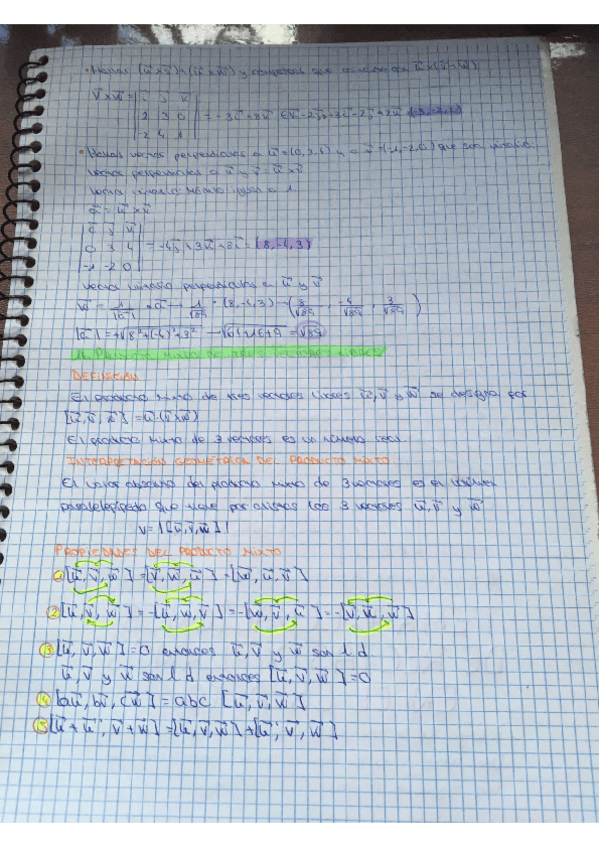 • Hallar (u⃗×v⃗)+(u⃗×w⃗) y comprobar que coincide con u⃗×(v⃗+w⃗)
v⃗×w⃗ =
2 3 0
-2 4 1
• Hallar vector perpendicular a u⃗ = y a v⃗ =(-1,-2,0) que sea unitario.
vector perpendicular a u⃗ y v⃗: u⃗×v⃗
vector unitario módulo igual a 1.
a⃗ = u⃗×v⃗
0 3 4 = -4j⃗+3k⃗+8i⃗ = (8,-4,3)
-1 -2 0
vector unitario perpendicular a u⃗ y v⃗
= 1/|a⃗| · a⃗ = 1/√89 · (8,-4,3) = (8/√89, -4/√89, 3/√89)
|a⃗| = +√8²+(-4)²+3² = √64+16+9 = √89
PRODUCTO MIXTO DE TRES VECTORES LIBRES
DEFINICIÓN
El producto mixto de tres vectores libres u⃗,v⃗ y w⃗ se designa por
[u⃗,v⃗,w⃗] = u⃗·(v⃗×w⃗)
El producto mixto de 3 vectores es un número real.
INTERPRETACIÓN GEOMÉTRICA DEL PRODUCTO MIXTO
El valor absoluto del producto mixto de 3 vectores es el volumen
paralelepípedo que tiene por aristas los 3 vectores u⃗,v⃗ y w⃗
V=|[u⃗,v⃗,w⃗]|
PROPIEDADES DEL PRODUCTO MIXTO
① [u⃗,v⃗,w⃗]=[v⃗,w⃗,u⃗]=[w⃗,u⃗,v⃗]
② [u⃗,v⃗,w⃗]=-[u⃗,w⃗,v⃗]=-[w⃗,v⃗,u⃗]=-[v⃗,u⃗,w⃗]
③ [u⃗,v⃗,w⃗]=0 entonces u⃗,v⃗ y w⃗ son l d
u⃗,v⃗ y w⃗ son l d entonces [u⃗,v⃗,w⃗]=0
④ [au⃗,bv⃗,cw⃗]=abc [u⃗,v⃗,w⃗]
⑤ [u⃗+u⃗', v⃗+w⃗]=[u⃗,v⃗,w⃗]+[u⃗',v⃗,w⃗]